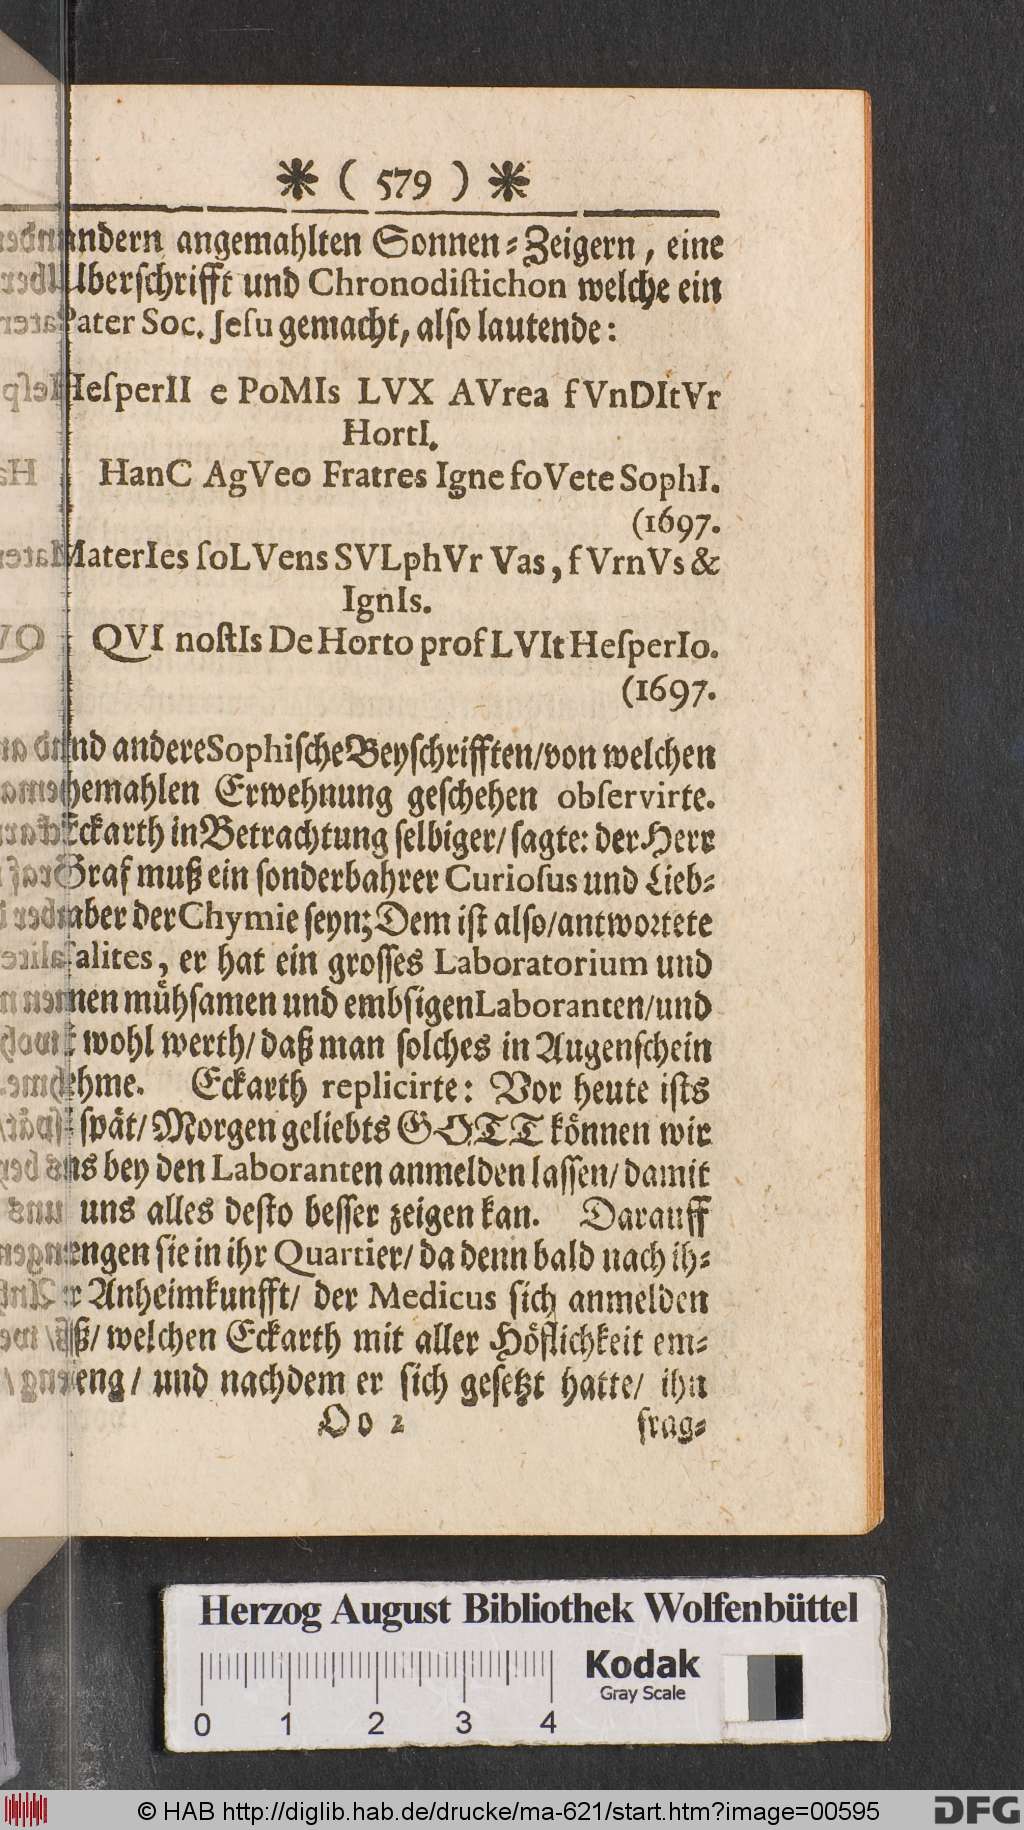 ( 579 )
andern angemahlten Sonnen-Zeigern, eine
Uberschrifft und Chronodistichon welche ein
Pater Soc. Jesu gemacht, also lautende:
HesperII e PoMIs LVX AVrea fVnDItVr
HortI.
HanC AgVeo Fratres Igne foVete SophI.
(1697.
MaterIes soLVens SVLphVr Vas, fVrnVs &
IgnIs.
QVI nostIs De Horto profLVIt HesperIo.
(1697.
und andere Sophische Beyschrifften/von welchen
ehemahlen Erwehnung geschehen observirte.
Eckarth in Betrachtung selbiger/ sagte: der Herr
Graf muß ein sonderbahrer Curiosus und Lieb-
haber der Chymie seyn; Dem ist also/antwortete
salites, er hat ein grosses Laboratorium und
nen mühsamen und embsigen Laboranten/und
wohl werth/ daß man solches in Augenschein
nehme. Eckarth replicirte: Vor heute ists
spät/ Morgen geliebts GOTT können wir
uns bey den Laboranten anmelden lassen/ damit
uns alles desto besser zeigen kan. Darauff
giengen sie in ihr Quartier/ da denn bald nach ih-
rer Anheimkunfft/ der Medicus sich anmelden
ließ/ welchen Eckarth mit aller Höflichkeit em-
pfieng/ und nachdem er sich gesetzt hatte/ ihn
Oo 2 frag-
Herzog August Bibliothek Wolfenbüttel
Kodak
Gray Scale
0 1 2 3 4
© HAB http://diglib.hab.de/drucke/ma-621/start.htm?image=00595
DFG